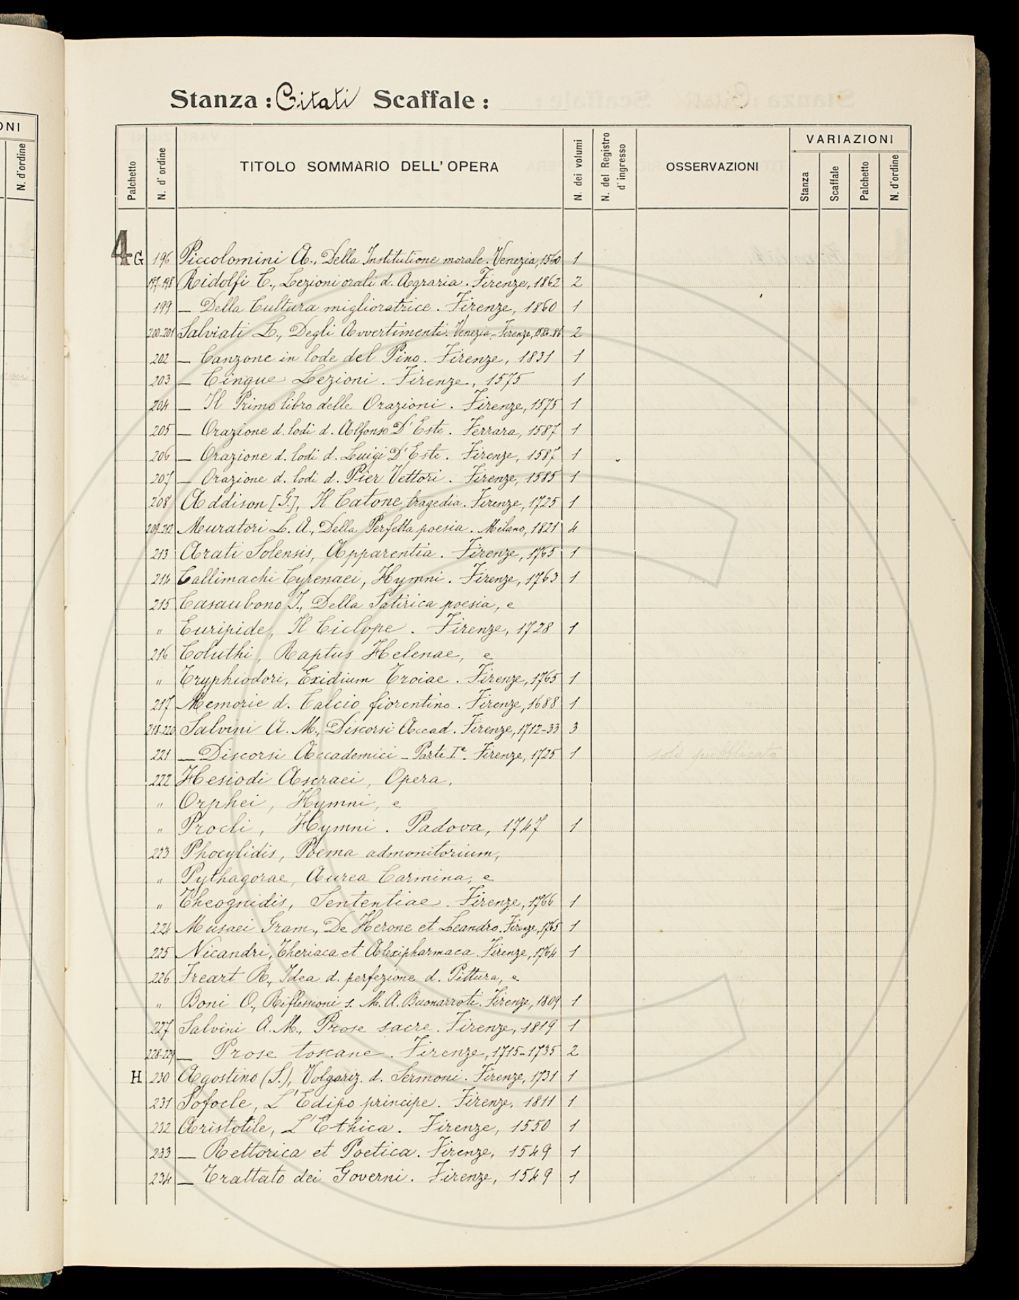 ONI
N. d'ordine
Stanza: Citati Scaffale:
Palchetto
N. d'ordine
TITOLO SOMMARIO DELL'OPERA
N. dei volumi
N. del Registro d'ingresso
OSSERVAZIONI
VARIAZIONI
Stanza
Scaffale
Palchetto
N. d'ordine
4 G 196 Piccolomini A., Della Institutione morale. Venezia, 1560 1
197-198 Ridolfi C., Lezioni orali d. Agraria. Firenze, 1862 2
199 — Della Cultura miglioratrice. Firenze, 1860 1
200-201 Salviati L., Degli Avvertimenti. Venezia-Firenze, 1584-86 2
202 — Canzone in lode del Pino. Firenze, 1831 1
203 — Cinque Lezioni. Firenze, 1575 1
204 — Il Primo libro delle Orazioni. Firenze, 1575 1
205 — Orazione d. lodi d. Alfonso D'Este. Ferrara, 1587 1
206 — Orazione d. lodi d. Luigi D'Este. Firenze, 1587 1
207 — Orazione d. lodi d. Pier Vettori. Firenze, 1585 1
208 Addison [G.], Il Catone, tragedia. Firenze, 1725 1
209-212 Muratori L. A., Della Perfetta poesia. Milano, 1821 4
213 Arati Solensis, Apparentia. Firenze, 1765 1
214 Callimachi Cyrenaei, Hymni. Firenze, 1763 1
215 Casaubono I., Della Satirica poesia, e
" Euripide, Il Ciclope. Firenze, 1728 1
216 Coluthi, Raptus Helenae, e
" Tryphiodori, Exidium Troiae. Firenze, 1765 1
217 Memorie d. Calcio fiorentino. Firenze, 1688 1
218-220 Salvini A. M., Discorsi Accad. Firenze, 1712-33 3
221 — Discorsi Accademici - Parte Iª. Firenze, 1725 1
222 Hesiodi Ascraei, Opera,
" Orphei, Hymni, e
" Procli, Hymni. Padova, 1747 1
223 Phocylidis, Poema admonitorium,
" Pythagorae, Aurea Carmina, e
" Theognidis, Sententiae. Firenze, 1766 1
224 Musaei Gram., De Herone et Leandro. Firenze, 1765 1
225 Nicandri, Theriaca et Alexipharmaca. Firenze, 1764 1
226 Freart R., Idea d. perfezione d. Pittura, e
" Boni O., Riflessioni s. M. A. Buonarroti. Firenze, 1809 1
227 Salvini A. M., Prose sacre. Firenze, 1819 1
228-229 — Prose toscane. Firenze, 1715-1735 2
H 230 Agostino (S.), Volgariz. d. Sermoni. Firenze, 1731 1
231 Sofocle, L'Edipo principe. Firenze, 1811 1
232 Aristotile, L'Ethica. Firenze, 1550 1
233 — Rettorica et Poetica. Firenze, 1549 1
234 — Trattato dei Governi. Firenze, 1549 1